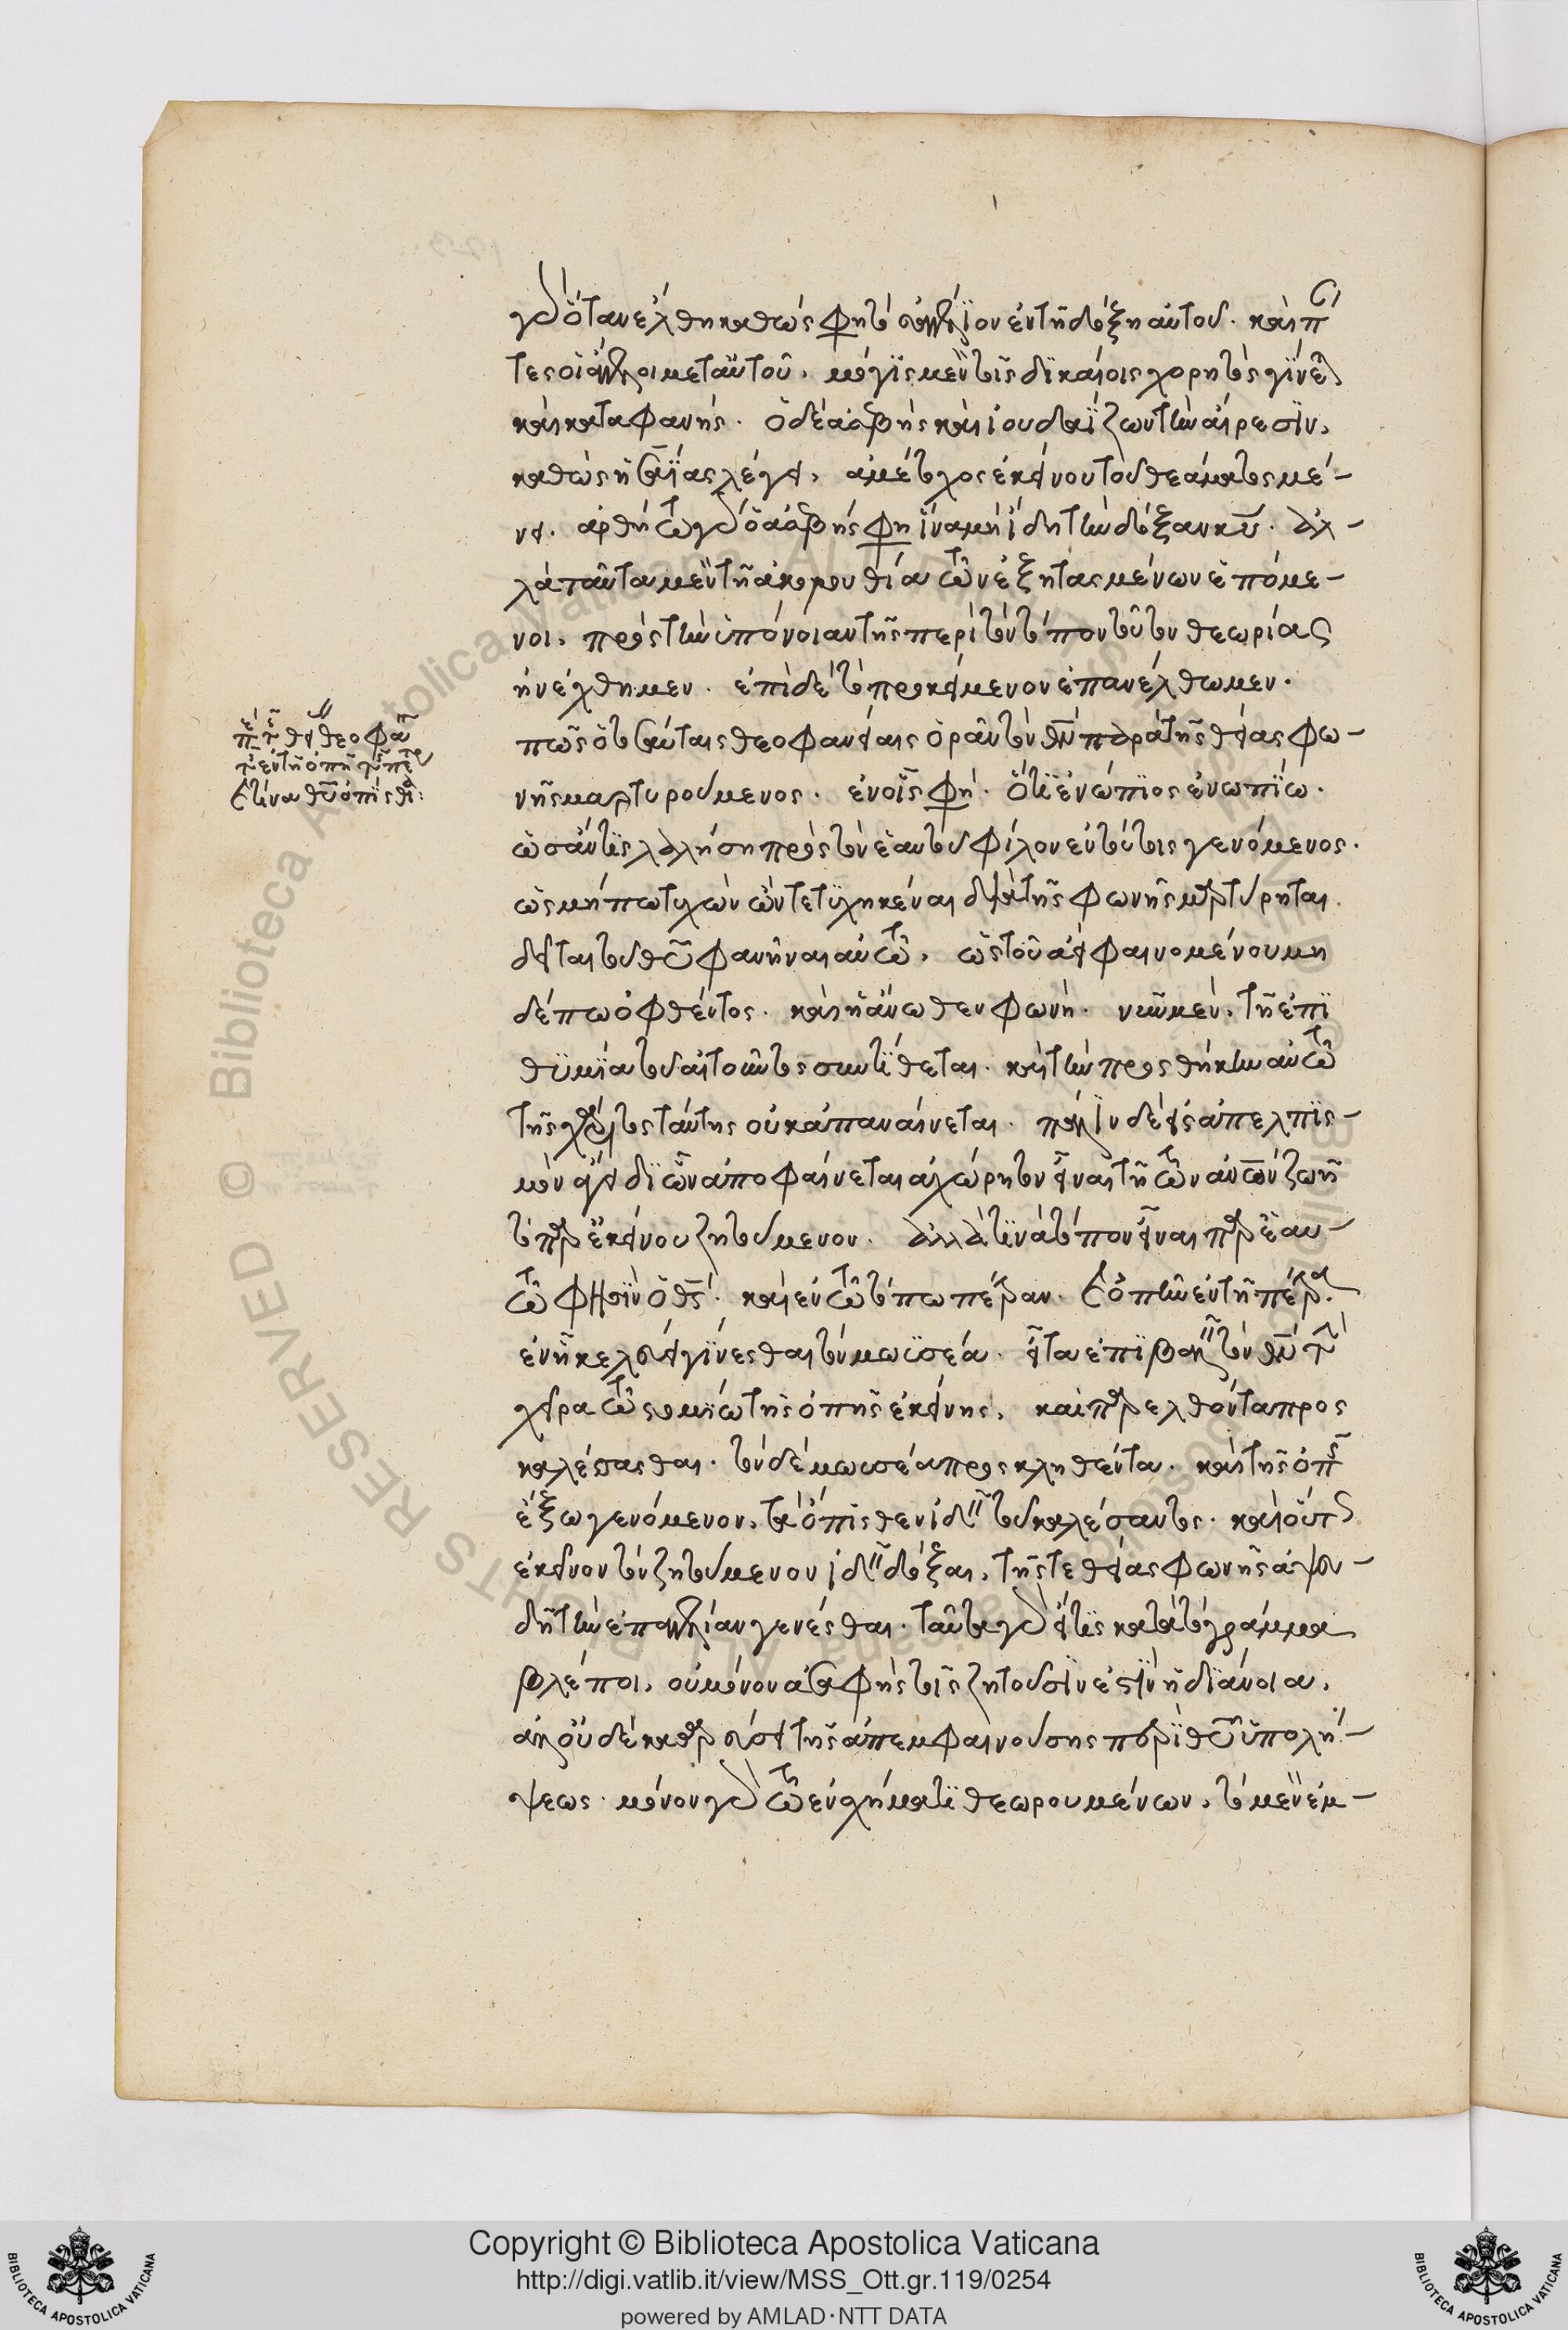 γὰρ ὅταν ἔλθη καθώς φησι τὸ εὐαγγέλιον ἐν τῆ δόξη αὐτοῦ. καὶ πάν
τες οἱ ἄγγελοι μετ' αὐτοῦ, μόγις μὲν τοῖς δικαίοις χωρητὸς γίνεται
καὶ καταφανής. ὁ δὲ ἀσεβὴς καὶ ἰουδαΐζων τὴν αἵρεσιν,
καθὼς ἡσαΐας λέγει, ἀμέτοχος ἐκείνου τοῦ θεάματος μέ-
νει. ἀρθήτω γὰρ ὁ ἀσεβής φησιν ἵνα μὴ ἴδη τὴν δόξαν κυ. ἀλ-
λὰ ταῦτα μὲν τῆ ἀκολουθία τῶν ἐξητασμένων ἑπόμε-
νοι, πρὸς τὴν ὑπόνοιαν τῆς περὶ τὸν τόπον τοῦτον θεωρίας
ἠνέχθημεν. ἐπὶ δὲ τὸ προκείμενον ἐπανέλθωμεν.
πῶς ὁ τοσαύταις θεοφανείαις ὁρᾶν τὸν θν παρὰ τῆς θείας φω-
νῆς μαρτυρούμενος. ἐν οἷς φησίν. ὅτι ἐνώπιος ἐνωπίω.
ὡσάν τις λαλήση πρὸς τὸν ἑαυτοῦ φίλον ἐν τούτοις γενόμενος.
ὡς μήπω τυχὼν ὧν τετυχηκέναι διὰ τῆς φωνῆς μαρτύρηται
δεῖται τοῦ θυ φανῆναι αὐτῶ, ὡς τοῦ ἀεὶ φαινομένου μη
δέπω ὀφθέντος. καὶ ἡ ἄνωθεν φωνή. νῦν μὲν, τῆ ἐπι
θυμία τοῦ αἰτοῦντος συντίθεται. καὶ τὴν προσθήκην αὐτῶ
τῆς χάριτος ταύτης οὐκ ἀπαναίνεται. πάλιν δὲ εἰς ἀπελπισ-
μὸν ἄγει δι' ὧν ἀποφαίνεται ἀχώρητον εἶναι τῆ τῶν ανων ζωῆ
τὸ παρ' ἐκείνου ζητούμενον. ἀλλά τινα τόπον εἶναι παρ' ἑαυ-
τῶ φησὶν ὁ θς. καὶ ἐν τῶ τόπω πέτραν. καὶ ὀπὴν ἐν τῆ πέτρα.
ἐν ἧ κελεύει γίνεσθαι τὸν μωυσέα. εἶτα ἐπιβαλεῖν τὸν θν τὴν
χεῖρα τῶ στομίω τῆς ὀπῆς ἐκείνης, καὶ παρελθόντα προσ
καλέσασθαι. τὸν δὲ μωυσέα προσκληθέντα. καὶ τῆς ὀπῆς
ἔξω γενόμενον, τὰ ὄπισθεν ἰδεῖν τοῦ καλέσαντος. καὶ οὕτως
ἐκεῖνον τὸν ζητούμενον ἰδεῖν δόξαι, τῆς τε θείας φωνῆς ἀψευ-
δῆ τὴν ἐπαγγελίαν γενέσθαι. ταῦτα γὰρ εἴ τις κατὰ τὸ γράμμα
βλέποι, οὐ μόνον ἀσαφὴς τοῖς ζητοῦσιν ἐστὶν ἡ διάνοια,
ἀλλ' οὐδὲ καθαρεύει τῆς ἀπεμφαινούσης περὶ θυ ὑπολή-
ψεως. μόνον γὰρ τῶν ἐν σχήματι θεωρουμένων, τὸ μὲν ἔμ-
τίνα θυ ὀπίσθια:
Copyright © Biblioteca Apostolica Vaticana
http://digi.vatlib.it/view/MSS_Ott.gr.119/0254
powered by AMLAD·NTT DATA